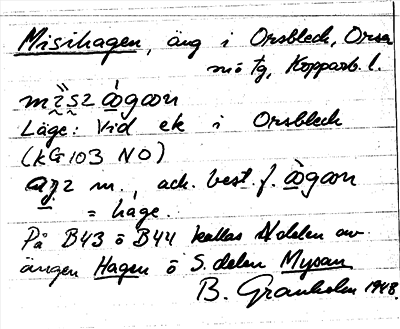 Misihagen, äng i Orsbleck, Orsa
Kopparb. l.
Läge: Vid ek i Orsbleck
(KG 103 NO)
m., ack. best. f.
= hage.
På B43 o B44 kallas N delen av
ängen Hagen o S. delen Mysan
B. Granholm 1948.